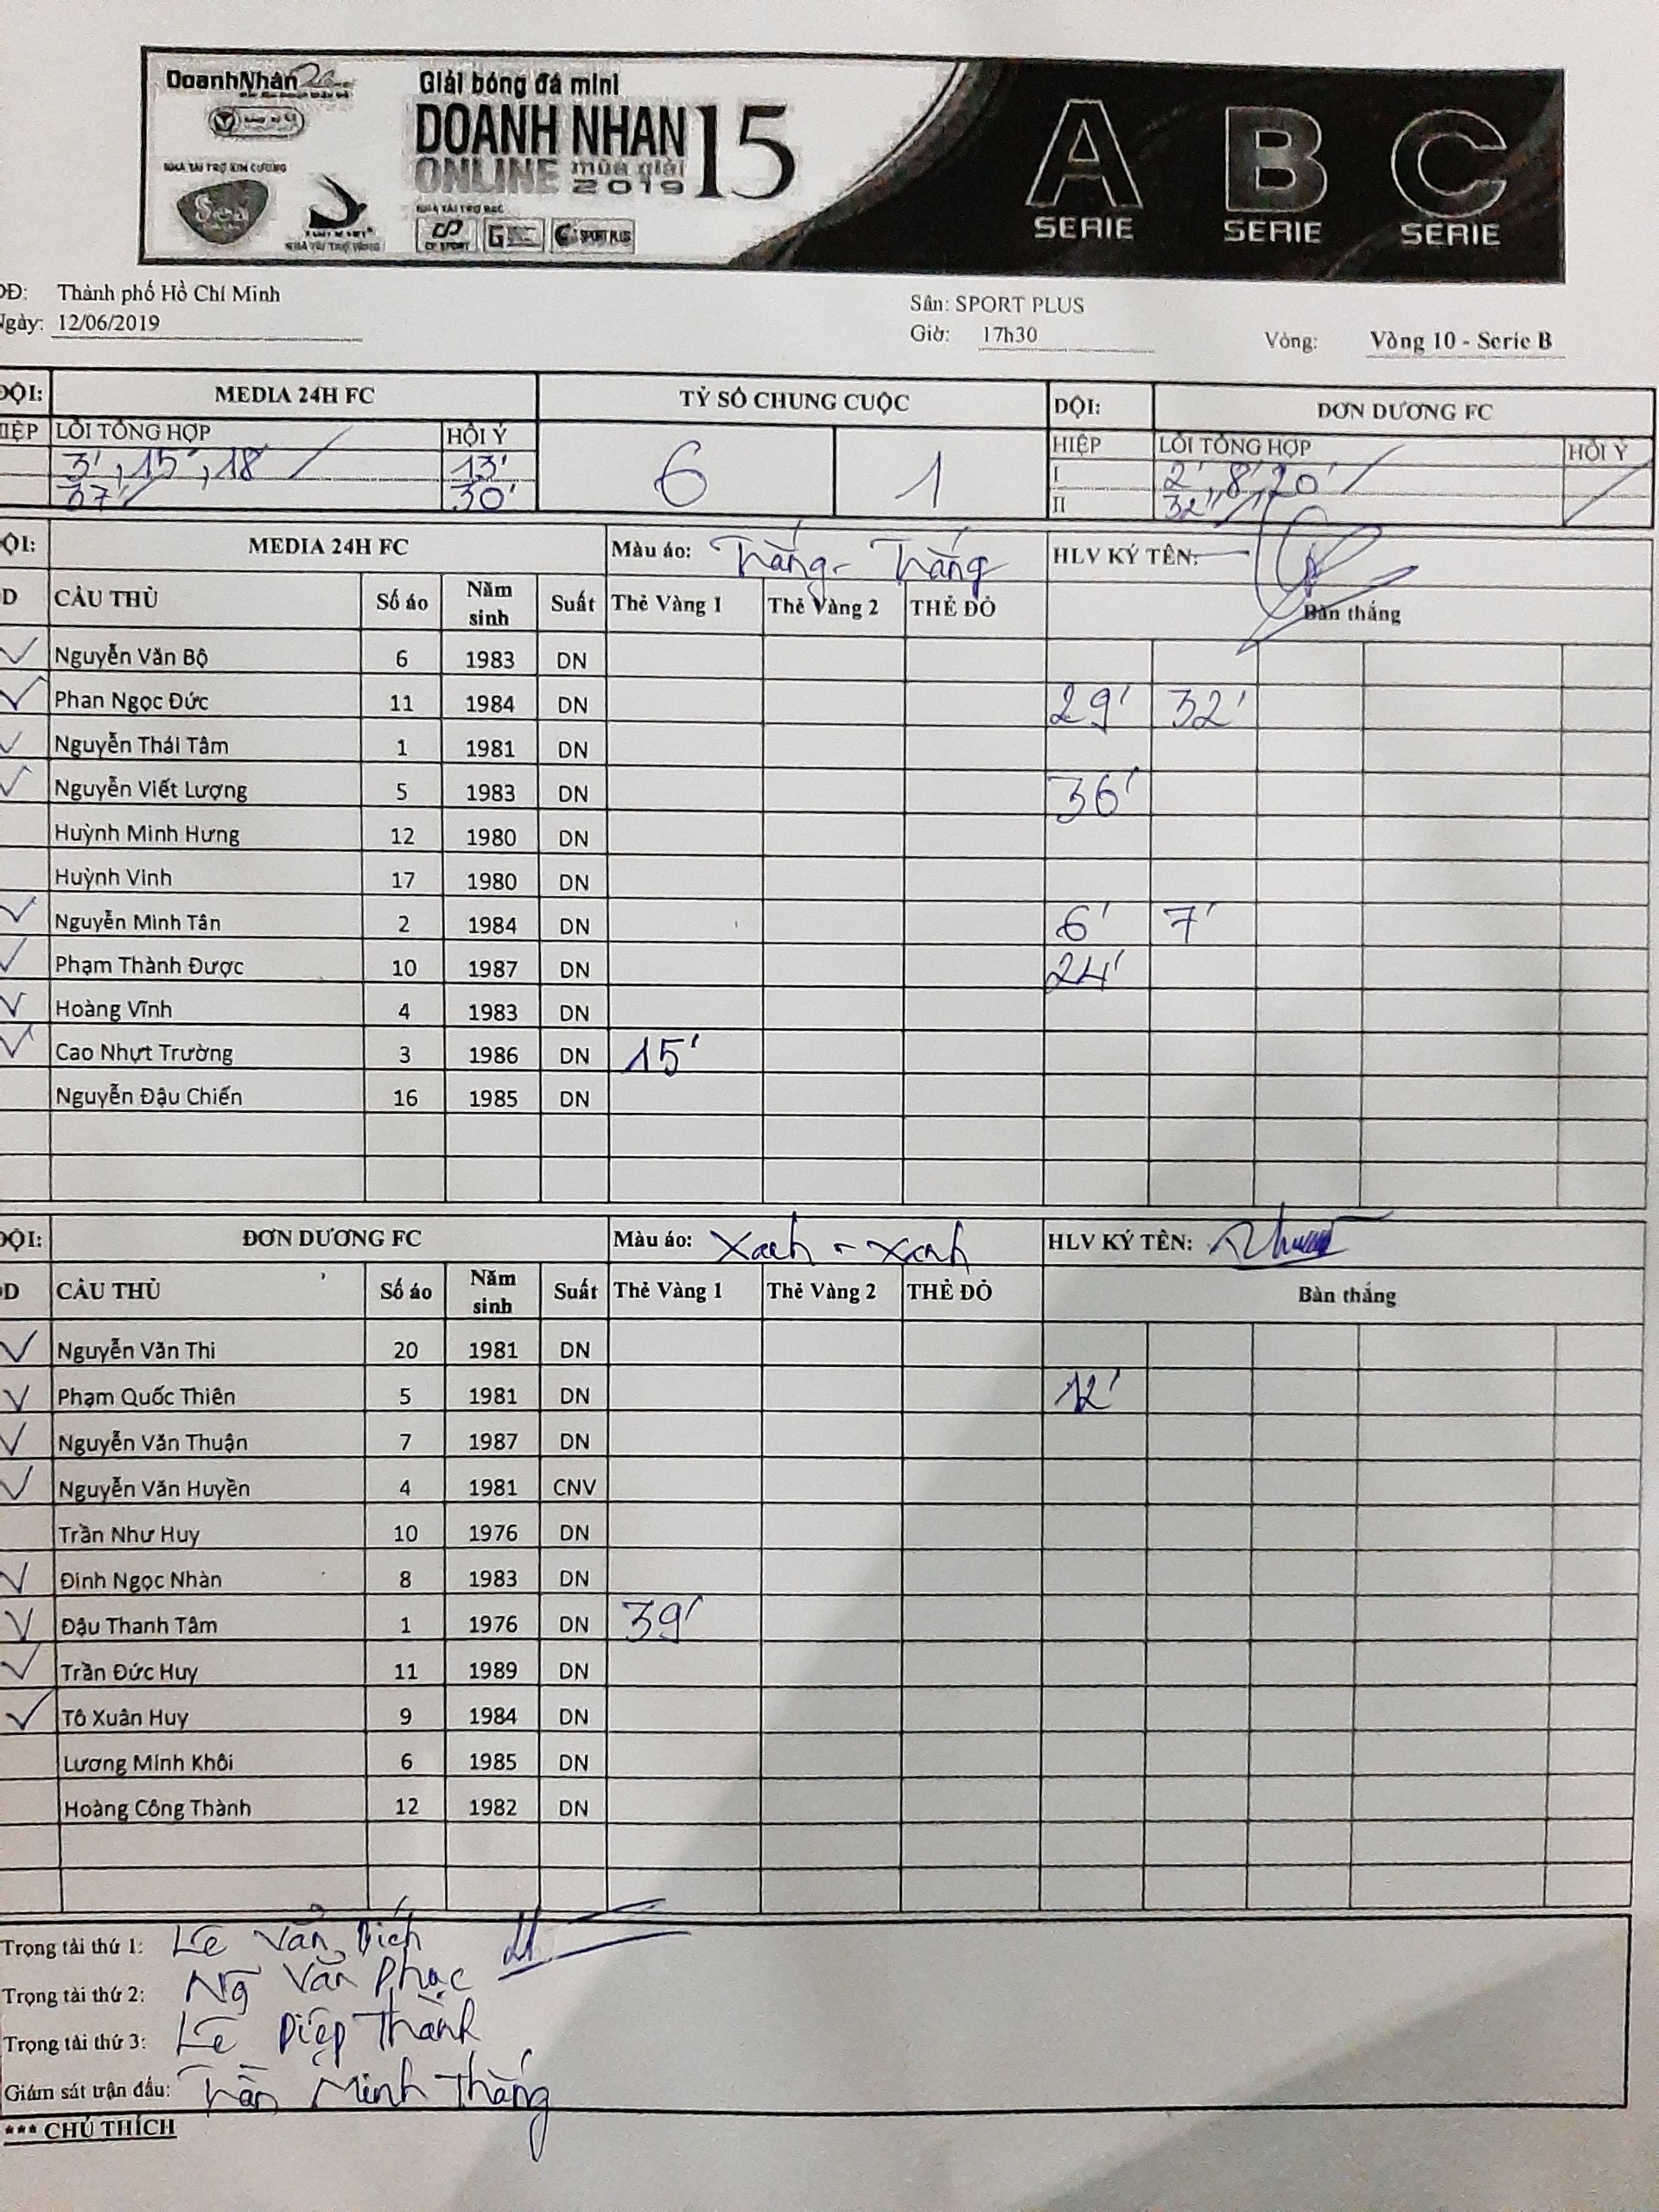 DoanhNhân
Giải bóng đá mini
DOANH NHAN 15
ONLINE mùa giải 2019
NHÀ TÀI TRỢ KIM CƯƠNG
NHÀ TÀI TRỢ BẠC
NHÀ TÀI TRỢ VÀNG
CP SPORT
SPORT PLUS
A B C
SERIE SERIE SERIE
Thành phố Hồ Chí Minh
Sân: SPORT PLUS
Ngày: 12/06/2019
Giờ: 17h30
Vòng: Vòng 10 - Serie B
ĐỘI: MEDIA 24H FC TỶ SỐ CHUNG CUỘC ĐỘI: ĐƠN DƯƠNG FC
HIỆP LỖI TỔNG HỢP HỘI Ý 6 1 HIỆP LỖI TỔNG HỢP HỘI Ý
3', 15', 18' 13' I 2', 8', 20'
37' 30' II 32'
ĐỘI: MEDIA 24H FC Màu áo: Trắng - Trắng HLV KÝ TÊN:
CẦU THỦ Số áo Năm sinh Suất Thẻ Vàng 1 Thẻ Vàng 2 THẺ ĐỎ Bàn thắng
Nguyễn Văn Bộ 6 1983 DN
Phan Ngọc Đức 11 1984 DN 29' 32'
Nguyễn Thái Tâm 1 1981 DN
Nguyễn Viết Lượng 5 1983 DN 36'
Huỳnh Minh Hưng 12 1980 DN
Huỳnh Vinh 17 1980 DN
Nguyễn Minh Tân 2 1984 DN 6' 7'
Phạm Thành Được 10 1987 DN 24'
Hoàng Vĩnh 4 1983 DN
Cao Nhựt Trường 3 1986 DN 15'
Nguyễn Đậu Chiến 16 1985 DN
ĐỘI: ĐƠN DƯƠNG FC Màu áo: Xanh - Xanh HLV KÝ TÊN:
CẦU THỦ Số áo Năm sinh Suất Thẻ Vàng 1 Thẻ Vàng 2 THẺ ĐỎ Bàn thắng
Nguyễn Văn Thi 20 1981 DN
Phạm Quốc Thiên 5 1981 DN 12'
Nguyễn Văn Thuận 7 1987 DN
Nguyễn Văn Huyền 4 1981 CNV
Trần Như Huy 10 1976 DN
Đinh Ngọc Nhàn 8 1983 DN
Đậu Thanh Tâm 1 1976 DN 39'
Trần Đức Huy 11 1989 DN
Tô Xuân Huy 9 1984 DN
Lương Minh Khôi 6 1985 DN
Hoàng Công Thành 12 1982 DN
Trọng tài thứ 1: Lê Văn Dích
Trọng tài thứ 2: Ng Văn Phục
Trọng tài thứ 3: Lê Diệp Thành
Giám sát trận đấu: Trần Minh Thắng
*** CHÚ THÍCH